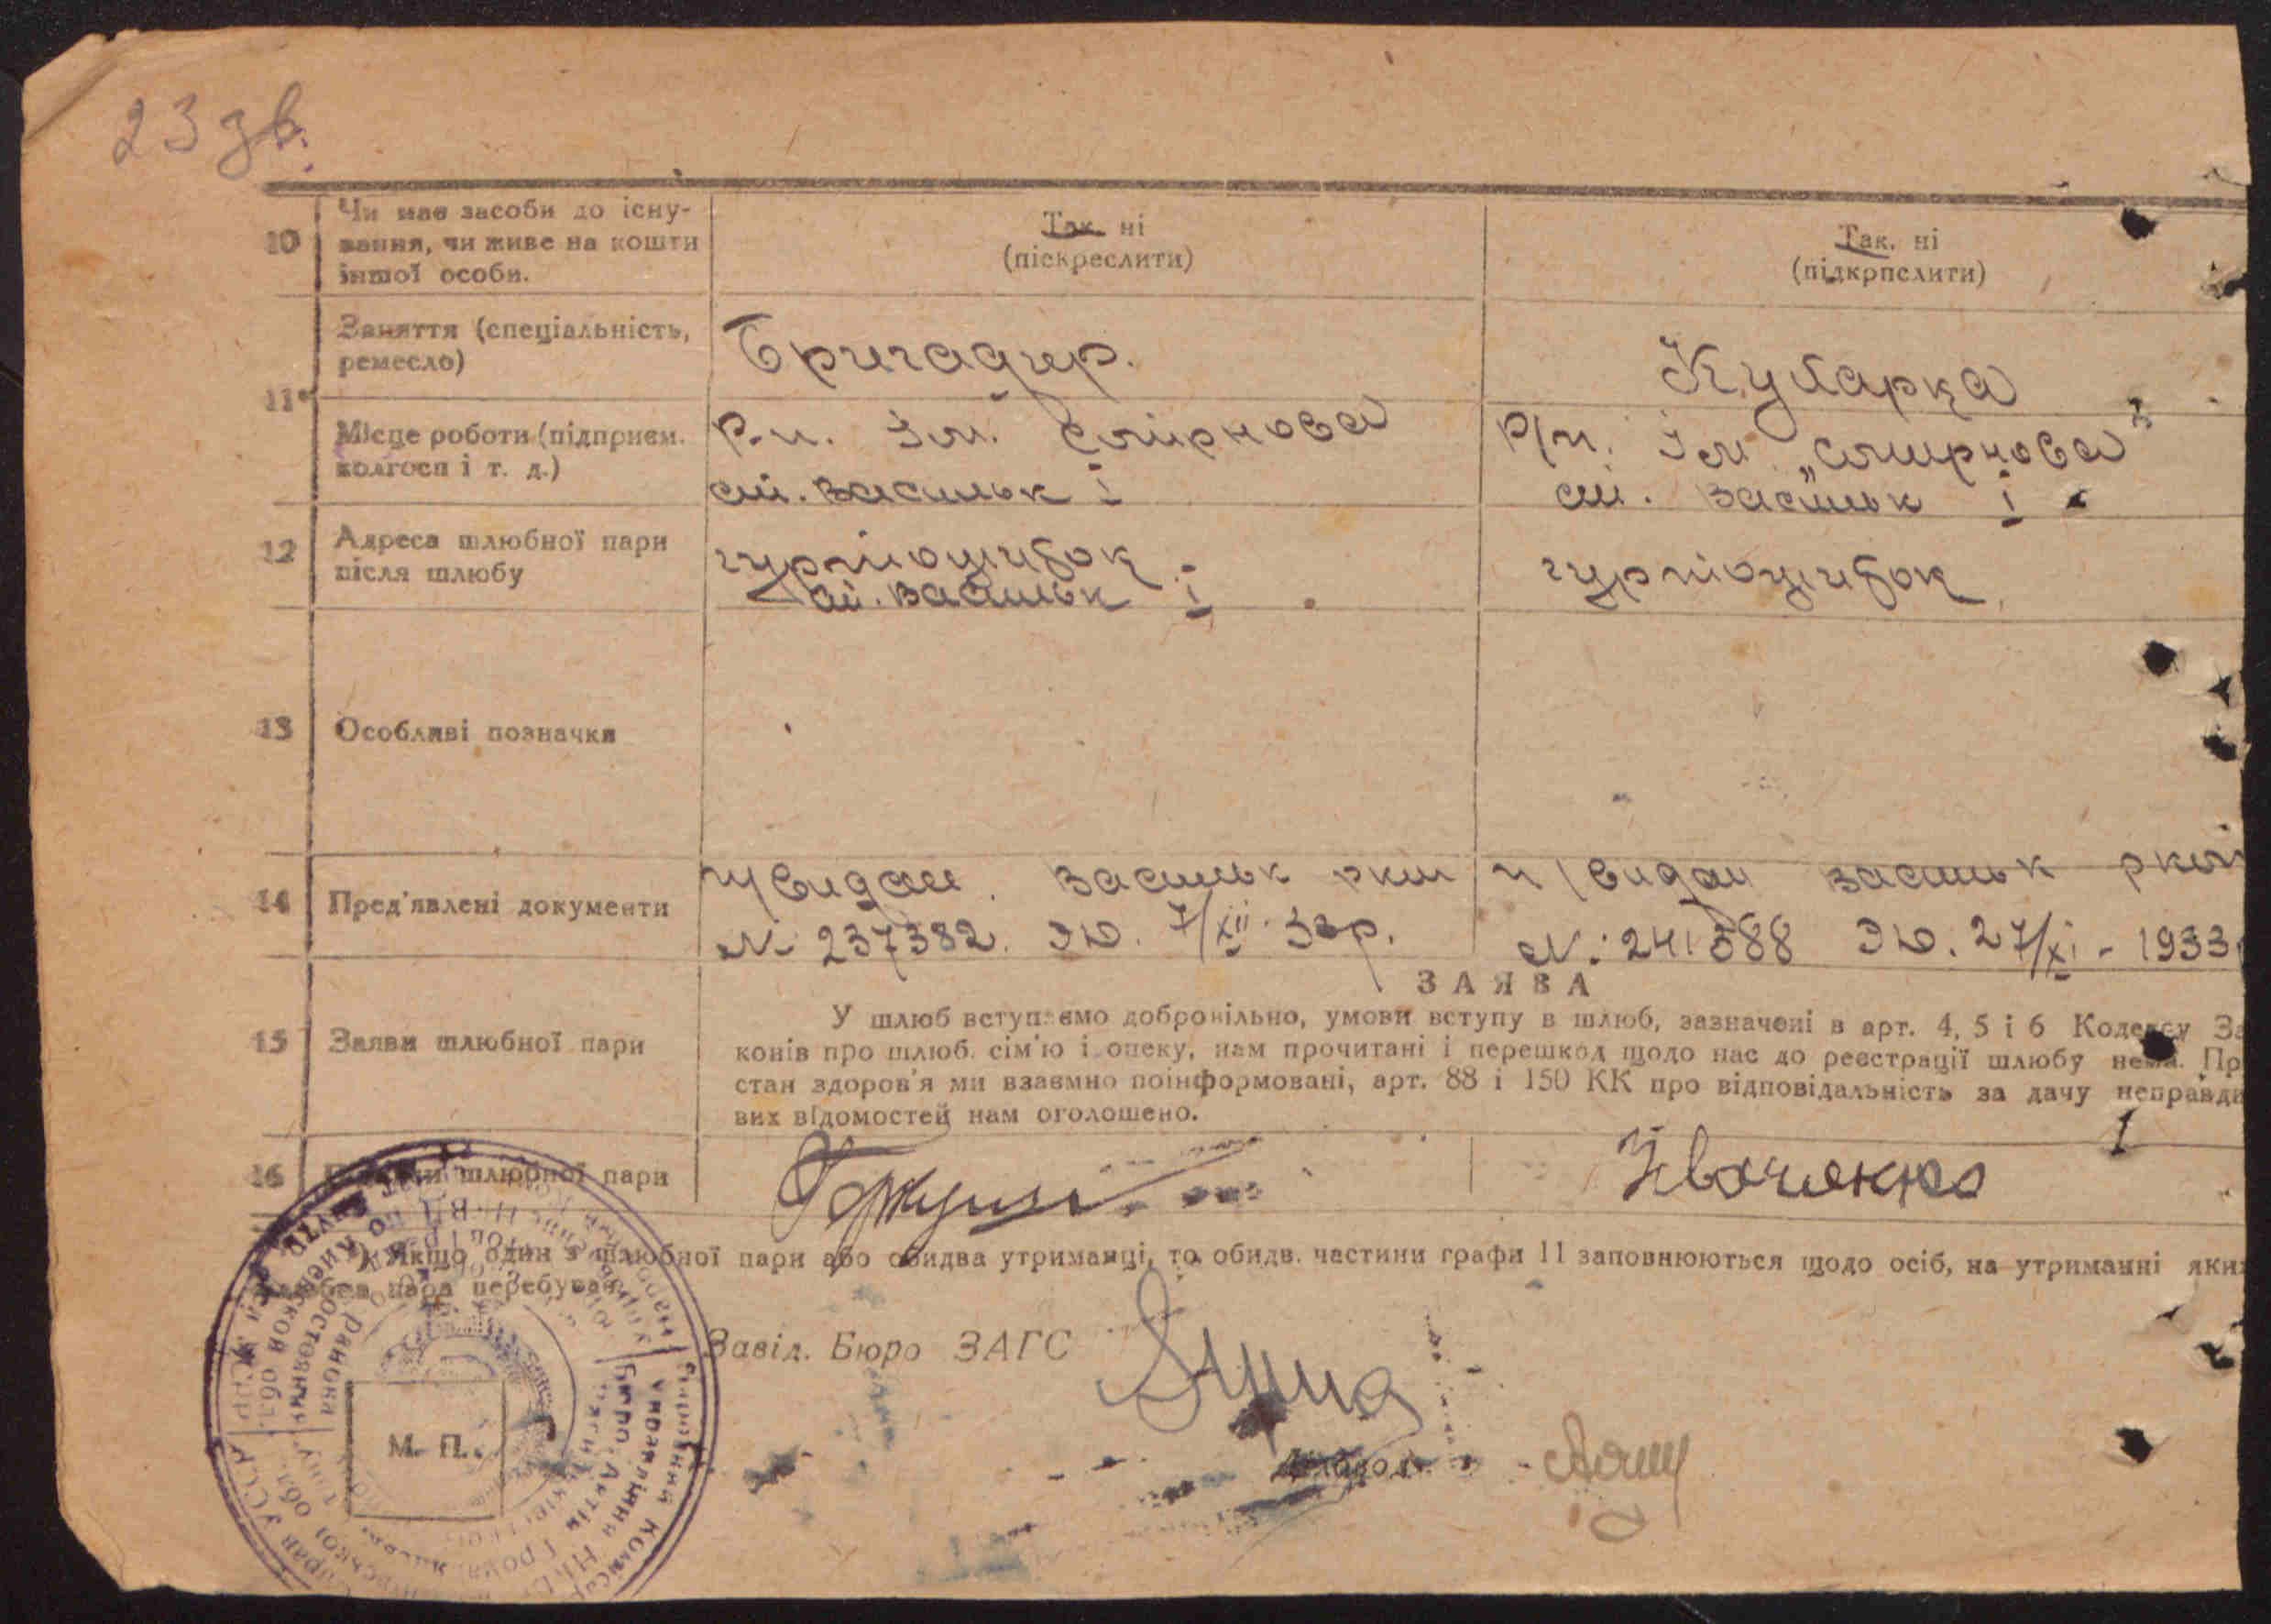 23 зв.
10
Чи має засоби до існу-
вання, чи живе на кошти
іншої особи.
Так. ні
(піскреслити)
Так. ні
(підкрпслити)
11*
Заняття (спеціальність,
ремесло)
Бригадир.
Кухарка
Місце роботи (підприєм.
колгосп і т. д.)
Ім. Смірнова
ст. Васильк І
Ім. „Смирнова"
ст. Васильк І
12
Адреса шлюбної пари
після шлюбу
гуртожиток
ст. Васильк І
гуртожиток
13
Особливі позначки
14
Пред'явлені документи
видан. Васильк ркм
№ 237382. ЭЮ. 7/XII 33р.
видан Васильк ркм
№: 241588 ЭЮ. 27/XI - 1933
15
Заяви шлюбної пари
ЗАЯВА
У шлюб вступаємо добровільно, умови вступу в шлюб, зазначені в арт. 4, 5 і 6 Кодексу За
конів про шлюб. сім'ю і опеку, нам прочитані і перешкод щодо нас до реєстрації шлюбу нема. Пр
стан здоров'я ми взаємно поінформовані, арт. 88 і 150 КК про відповідальність за дачу неправди
вих відомостей нам оголошено.
16
шлюбної пари
*) Якщо один з шлюбної пари або обидва утриманці, то обидв. частини графи 11 заповнюються щодо осіб, на утриманні яки
пара перебуває.
Завід. Бюро ЗАГС
М. П.